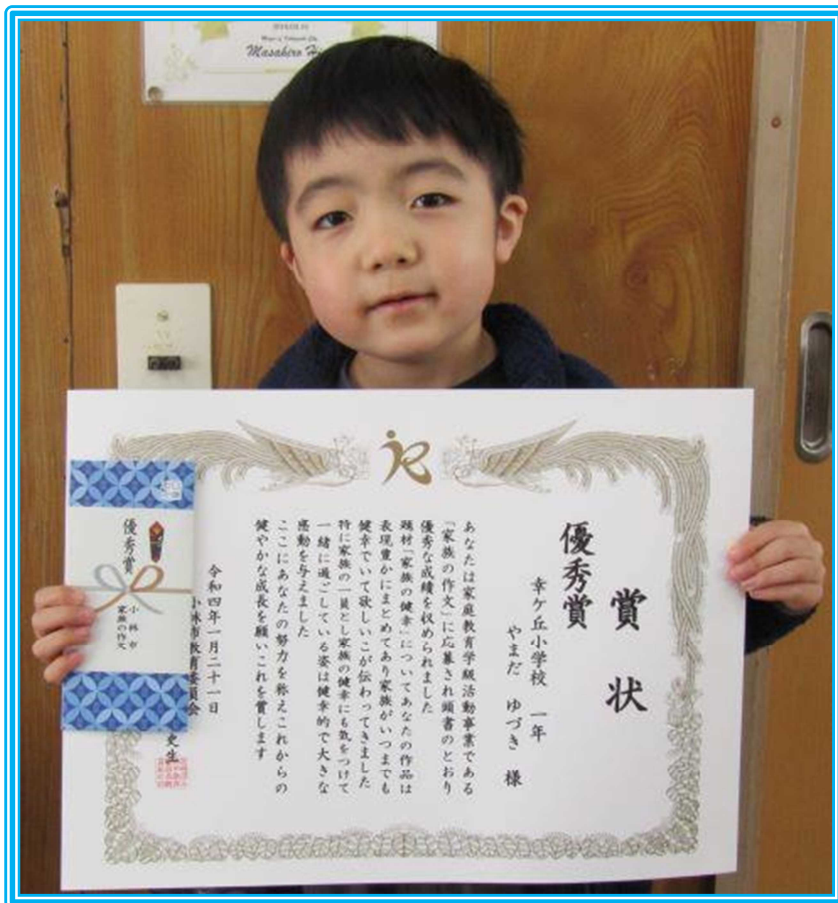 Masahiro
賞状
優秀賞
幸ケ丘小学校 一年
やまだ ゆづき 様
あなたは家庭教育学級活動事業である
「家族の作文」に応募され頭書のとおり
優秀な成績を収められました
題材「家族の健幸」についてあなたの作品は
表現豊かにまとめてあり家族がいつまでも
健幸でいて欲しいこが伝わってきました
特に家族の一員とし家族の健幸にも気をつけて
一緒に過ごしている姿は健幸的で大きな
感動を与えました
ここにあなたの努力を称えこれからの
健やかな成長を願いこれを賞します
令和四年一月二十一日
小林市教育委員会
史生
優秀賞
小林市
家族の作文